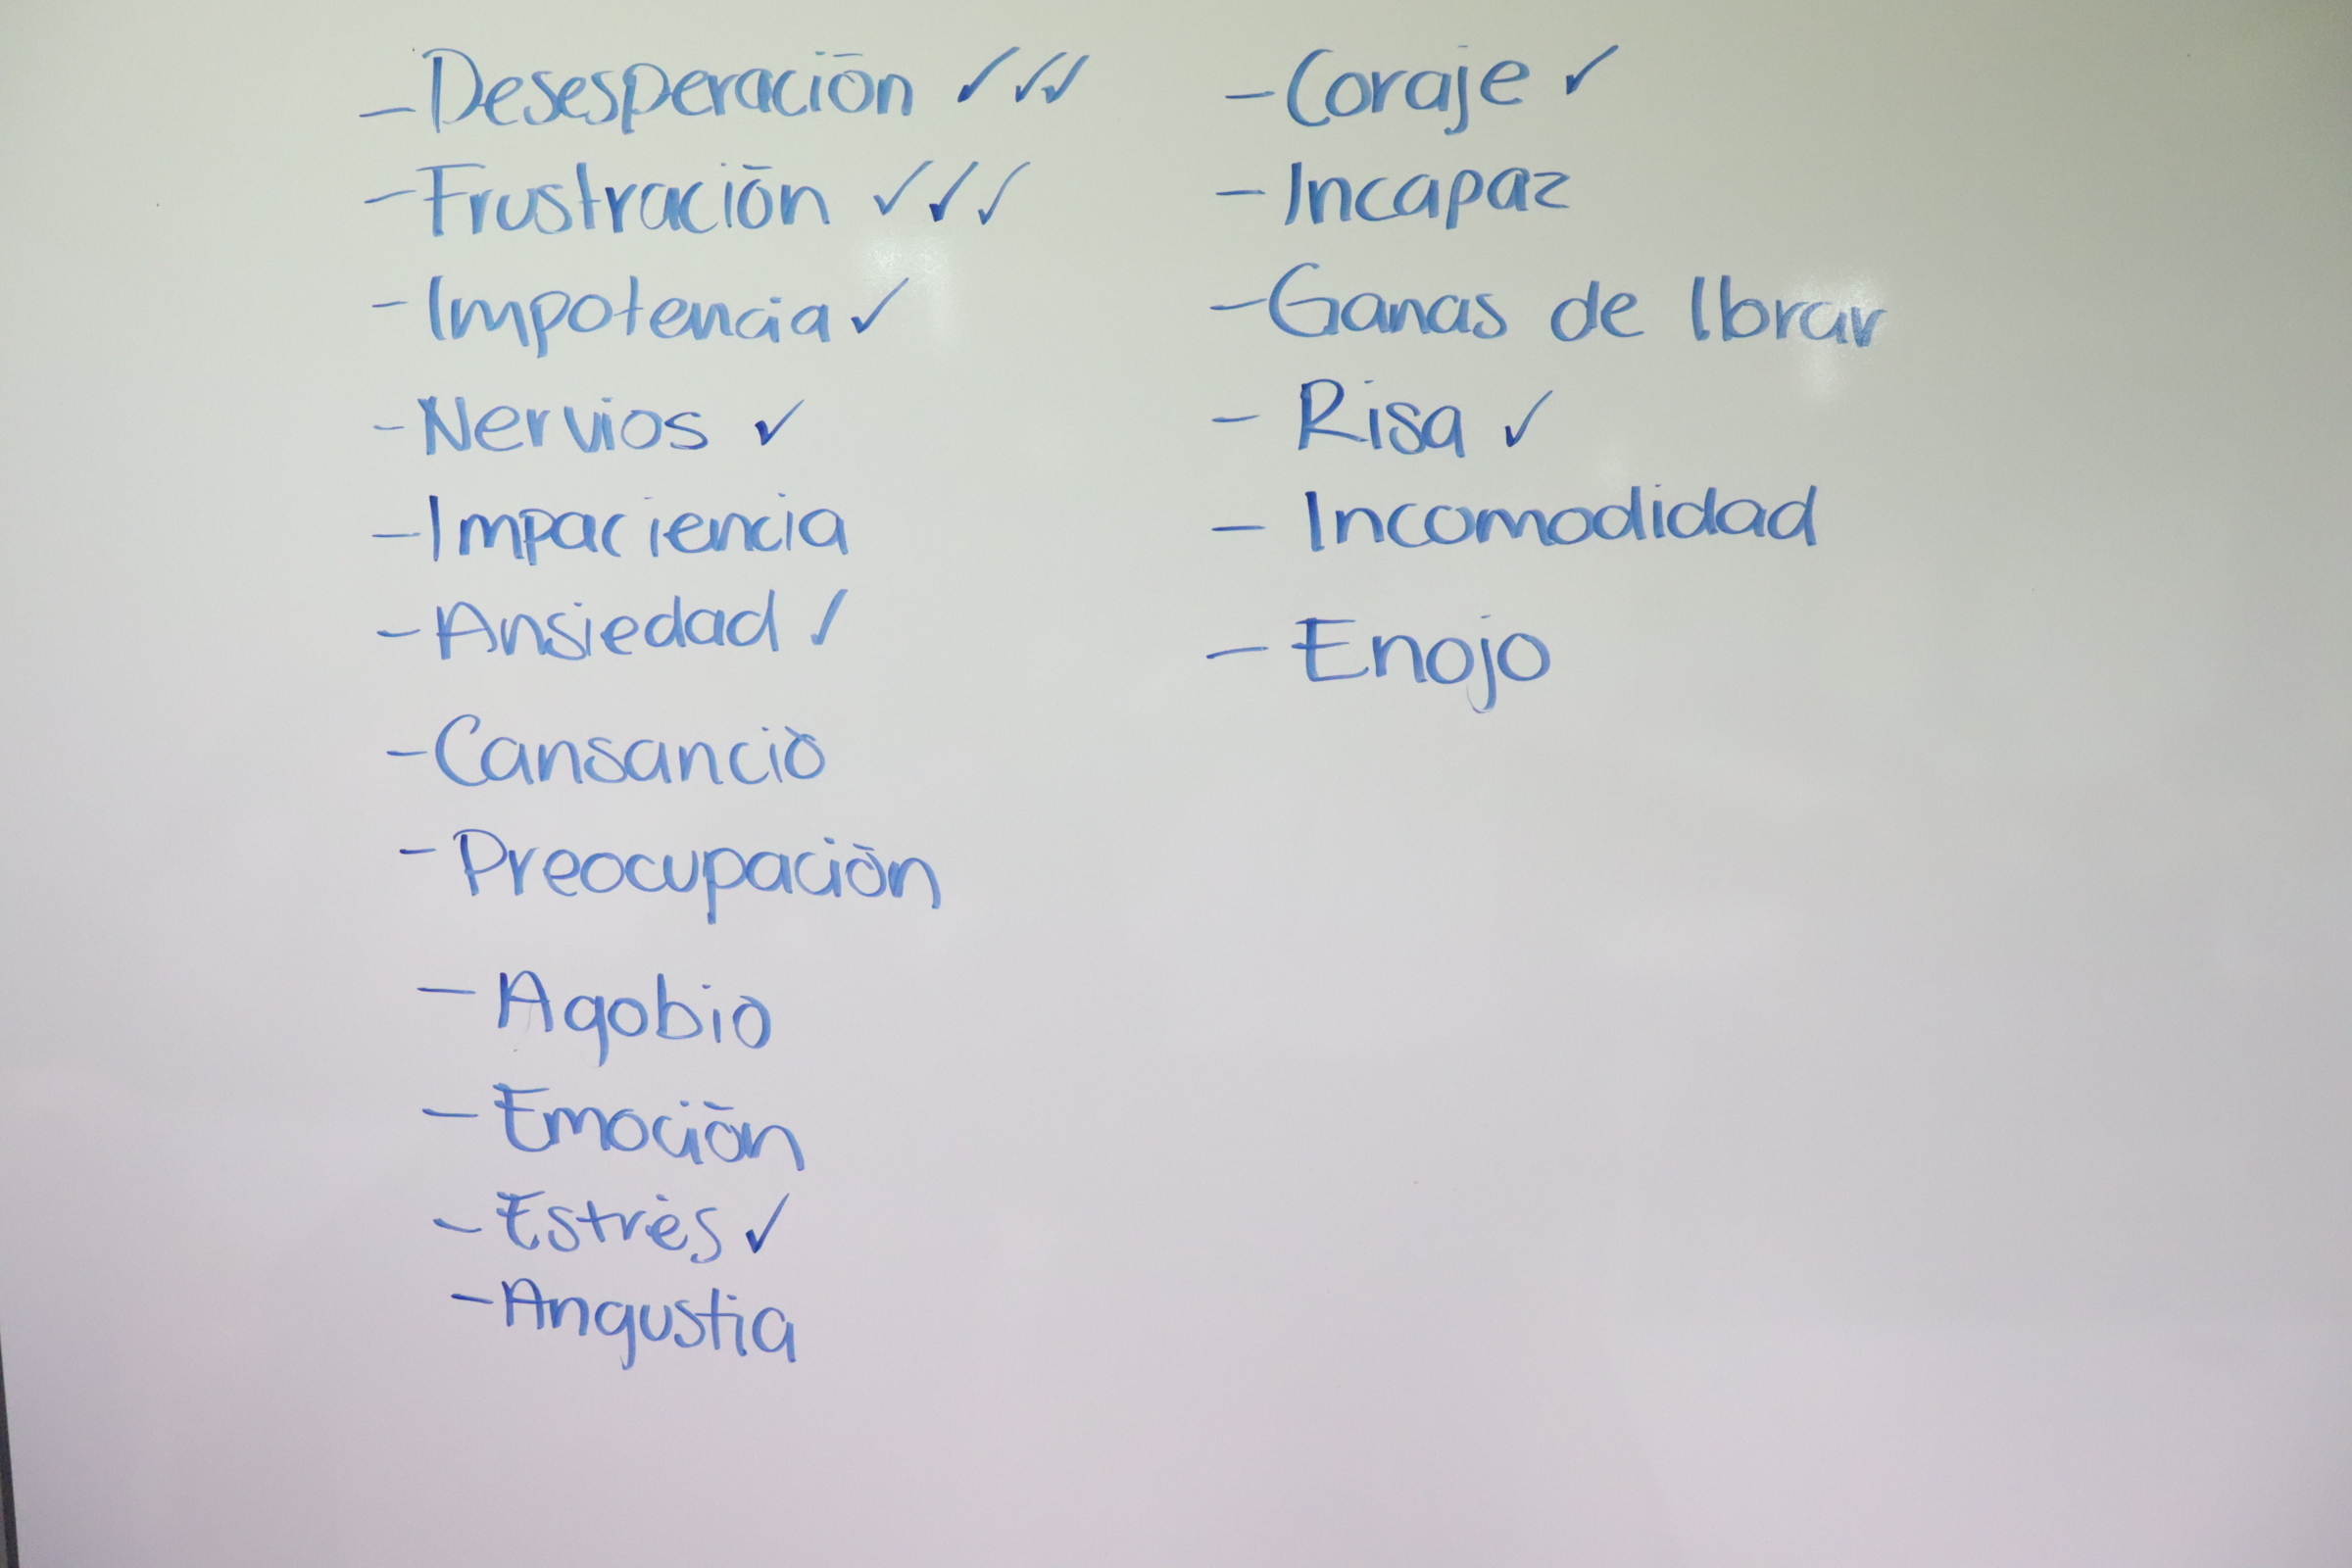 - Desesperación ✓✓✓
- Frustración ✓✓✓
- Impotencia ✓
- Nervios ✓
- Impaciencia
- Ansiedad ✓
- Cansancio
- Preocupación
- Agobio
- Emoción
- Estrés ✓
- Angustia
- Coraje ✓
- Incapaz
- Ganas de lbrar
- Risa ✓
- Incomodidad
- Enojo